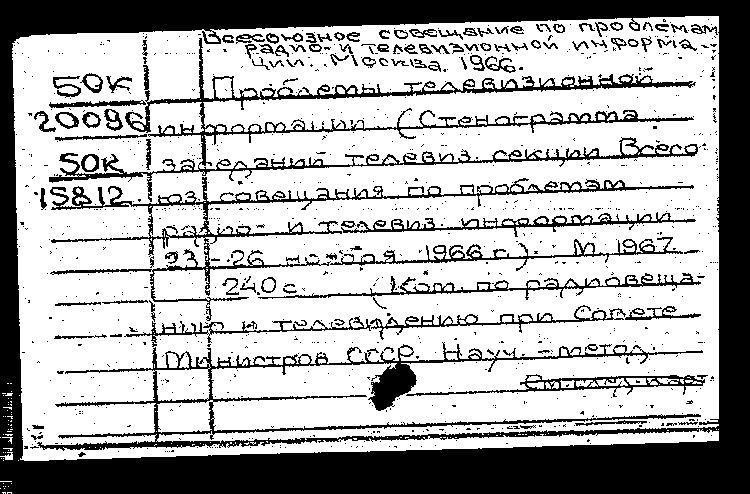 Всесоюзное совещание по проблемам
радио- и телевизионной информа-
ции. Москва. 1966.
50К Проблемы телевизионной
20096 информации (Стенограмма
50К заседаний телевиз. секции Всесо-
15812 юз. совещания по проблемам
радио- и телевиз. информации
23-26 ноября 1966 г.). М., 1967.
240 с. (Ком. по радиовеща-
нию и телевидению при Совете
Министров СССР. Науч.-метод.
См. след. карт.